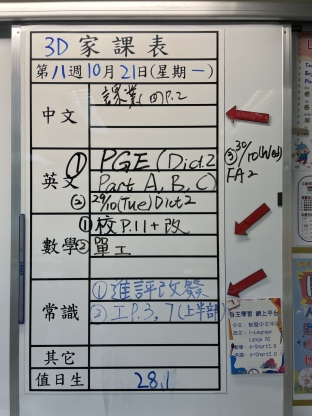 3D 家課表
第八週10月21日(星期一)
中文 課業四P.2
英文 ① PGE (Dict.2
Part A, B, C)
② 29/10(Tue) Dict 2
③ 30/10(Wed)
FA2
數學 ① 校P.11+改
② 單工
常識 ① 進評改簽
② 工P.3,7(上半部)
其它
值日生 28,1
自主學習 網上平台